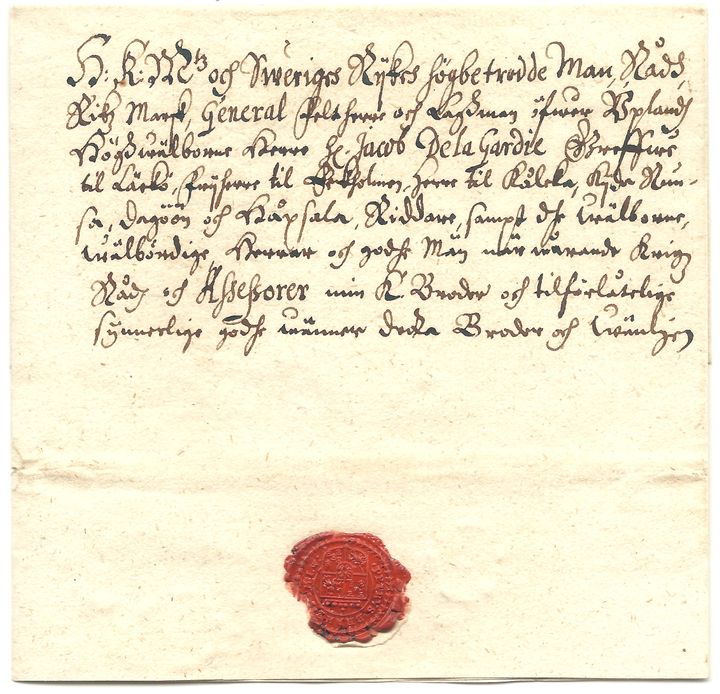 H: K: M:tz och Sweriges Rijkes högbetrodde Man, Rådh,
Rikz Marsk, General Feltherre och Lagman öfwer Uplandh
Högwälborne Herre H. Jacob De la Gardie Greffwe
til Läckö, fryherre til Eekholmen, herre til Kålcka, Kyda Run-
sa, Dagöön och Håpsala, Riddare, sampt dhe wälborne,
wälbördige, Herrar och godhe Män närwarande Krigz
Rådh och Assessorer min K. Broder och tilförlåtelige
synnerlige godhe wänner Broder och wänligen